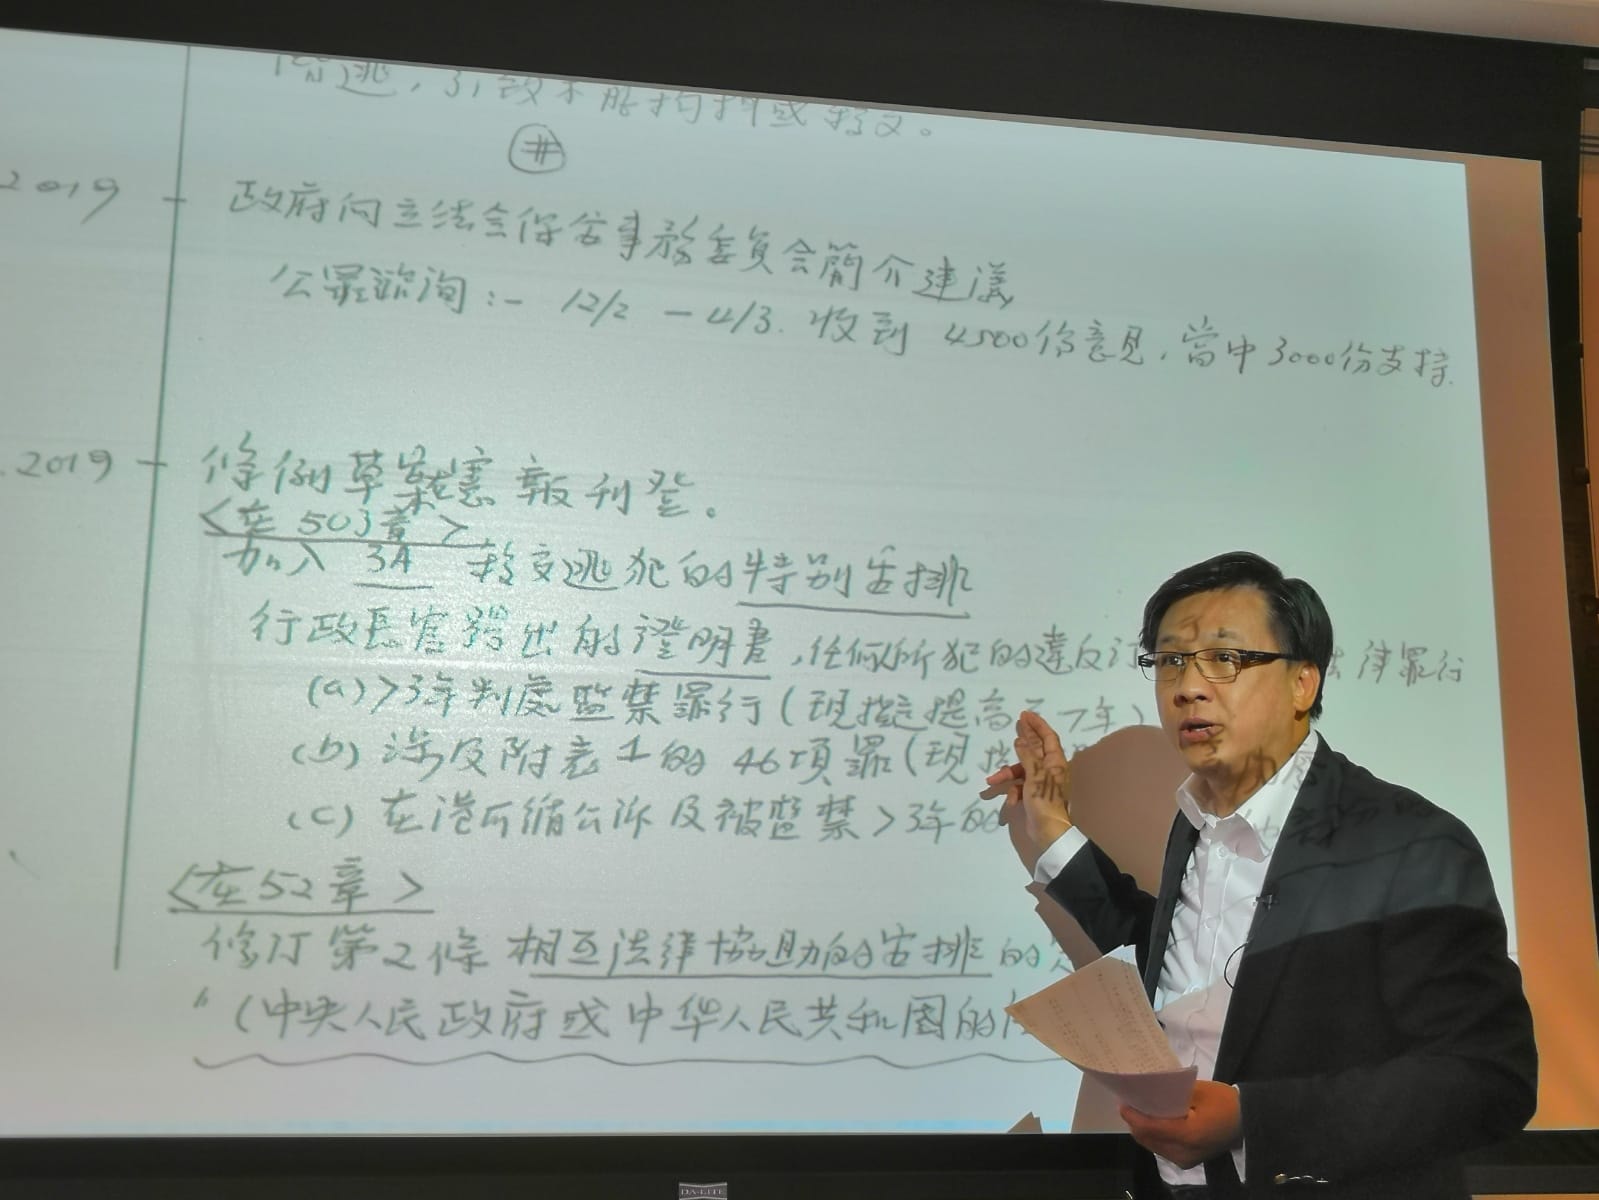 潛逃，引致不能拘捕或移交。
#
2019 政府向立法會保安事務委員會簡介建議
公眾諮詢:- 12/2 - 4/3. 收到 4500份意見，當中3000份支持.
.2019 條例草案憲報刊登。
<在503章>
加入 3A 移交逃犯的特別安排
行政長官發出的證明書，任何所犯的違反 法律罪行
(a) >3年判處監禁罪行(現擬提高至7年)
(b) 涉及附表1的46項罪(現
(c) 在港可循公訴及被監禁>3年的
<在52章>
修訂第2條 相互法律協助的安排的
"(中央人民政府或中华人民共和國的
DA-LITE